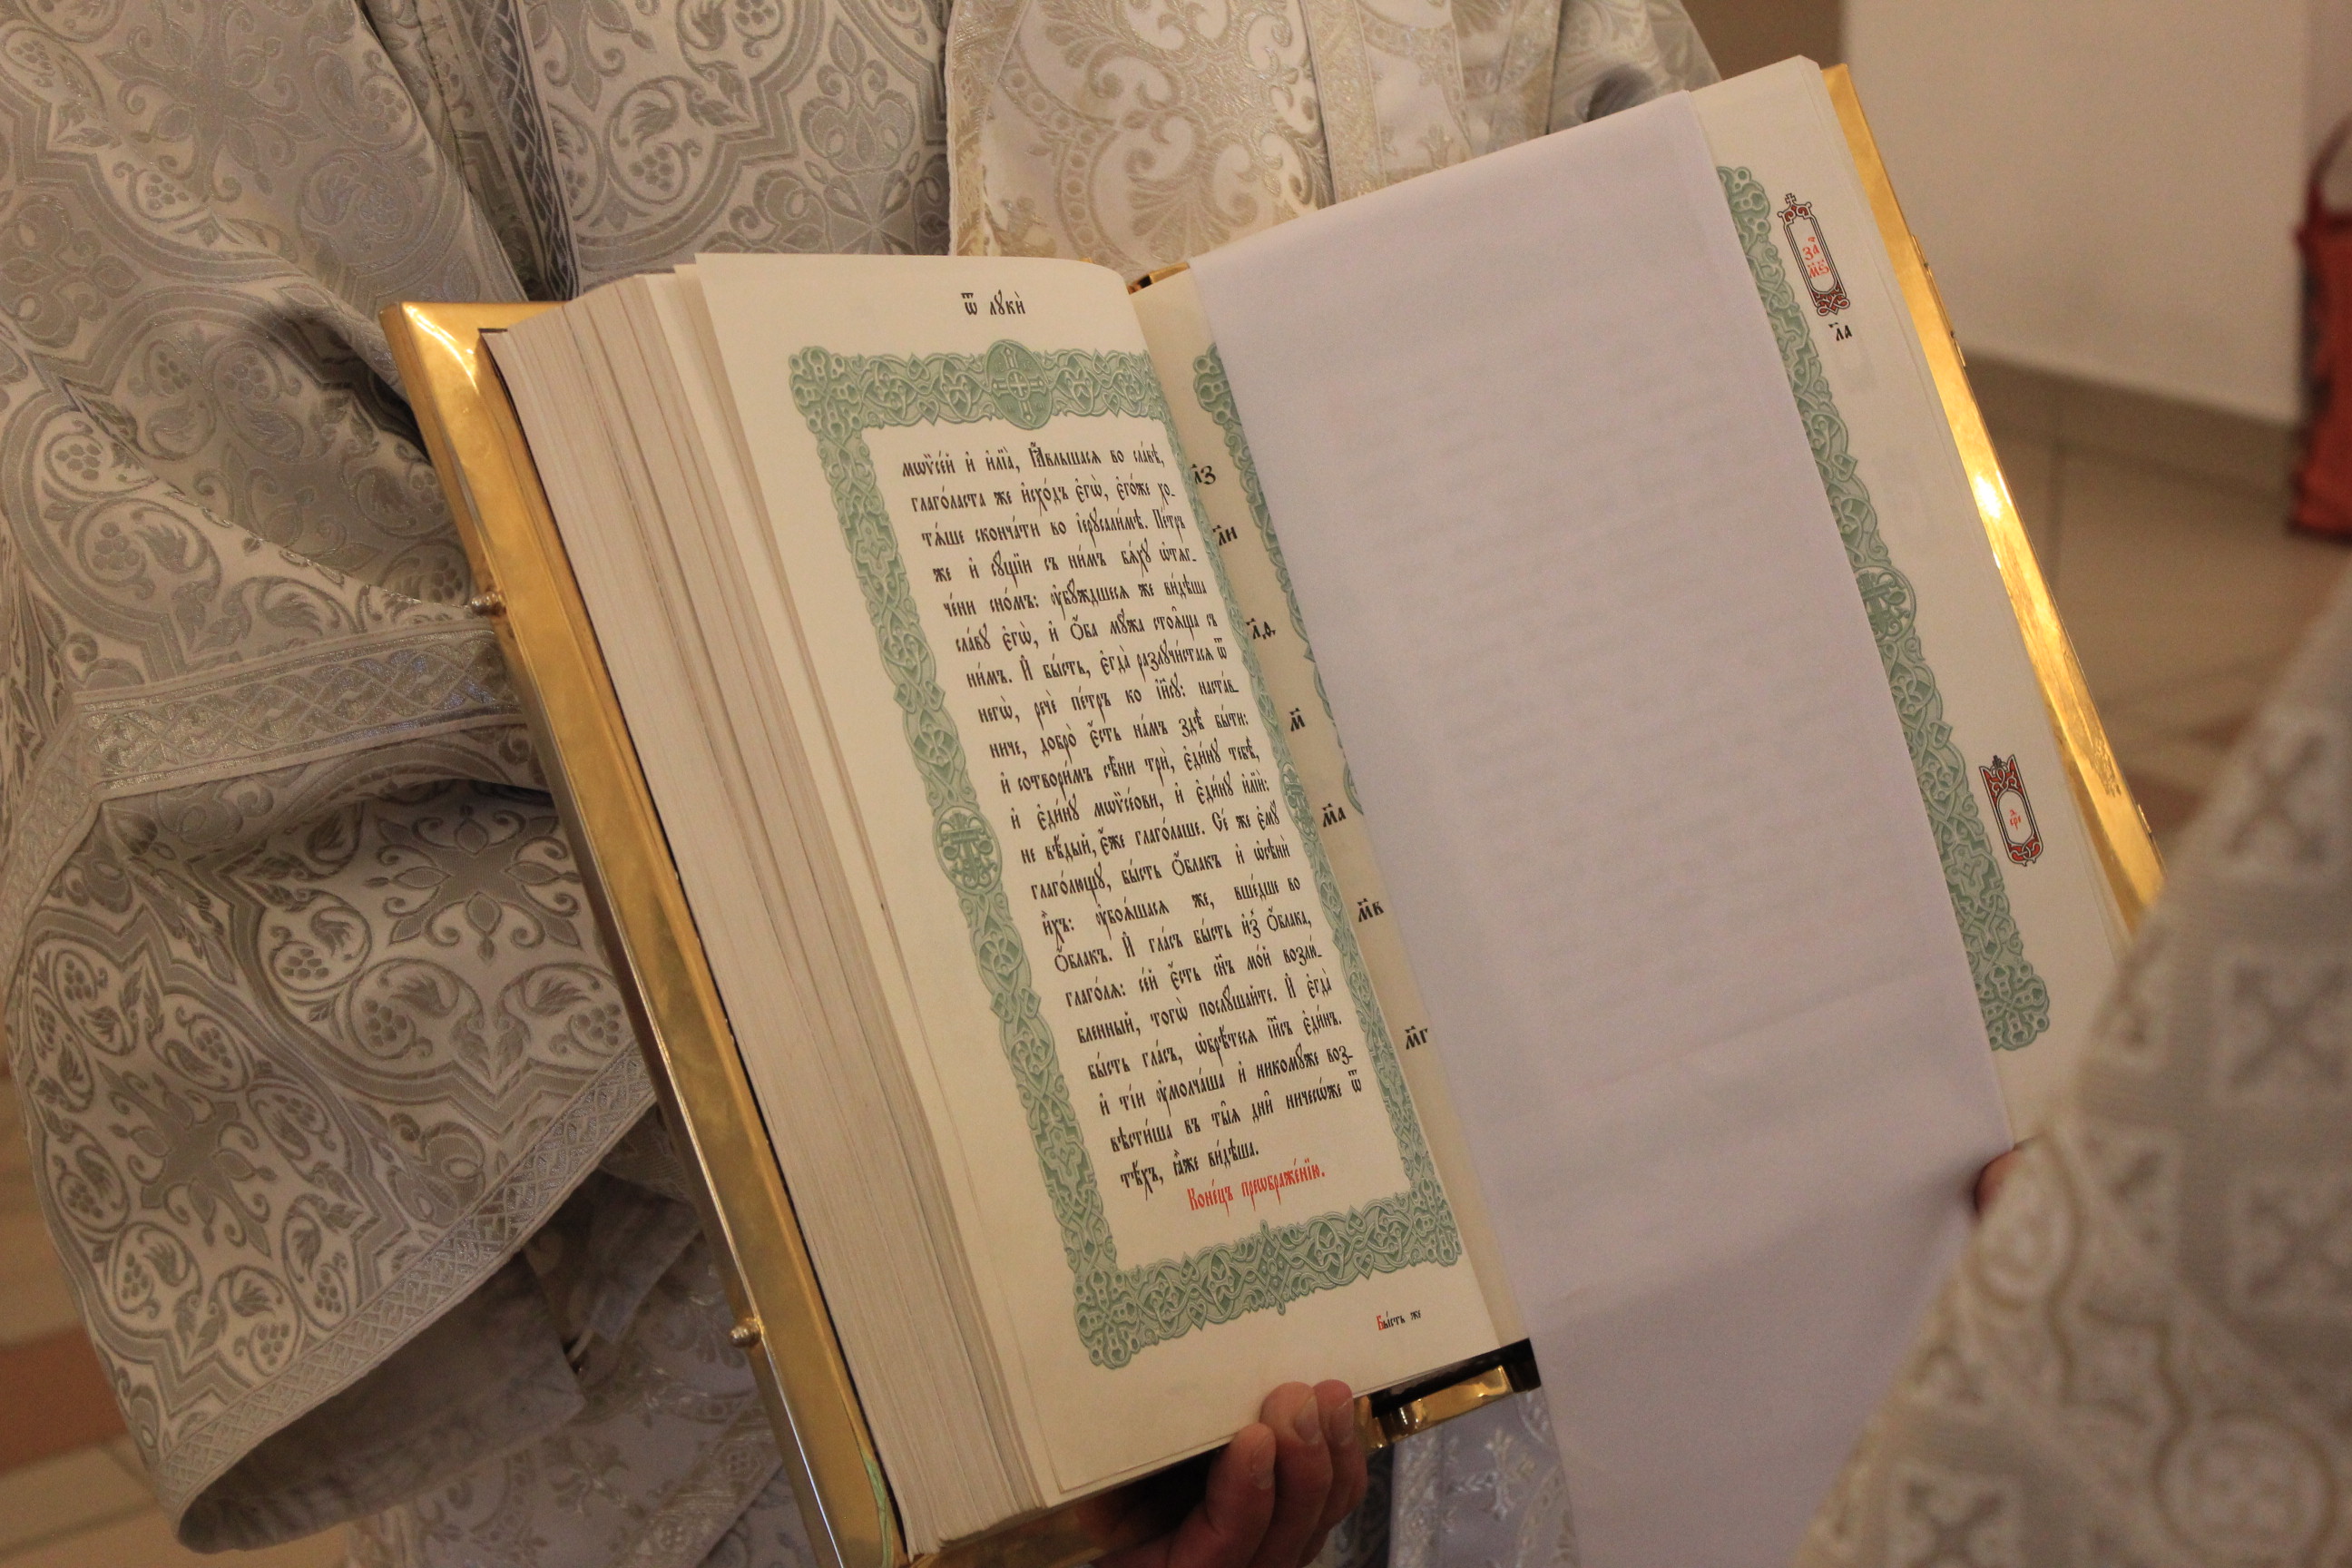 Ѿ лꙋкѝ
мѡѷсе́й и҆ и҆лїа̀, ꙗ҆́вльшасѧ во сла́вѣ,
глаго́ласта же и҆схо́дъ є҆гѡ̀, є҆го́же хо-
тѧ́ше сконча́ти во і҆ерⷭ҇али́мѣ. Пе́тръ
же и҆ сꙋ́щїи съ ни́мъ бѧ́хꙋ ѡ҆тѧг-
че́ни сно́мъ: ᲂу҆бꙋ́ждшесѧ же ви́дѣша
сла́вꙋ є҆гѡ̀, и҆ ѻ҆́ба мꙋ̑жа стоѧ̑ща съ
ни́мъ. И҆ бы́сть, є҆гда̀ разлꙋчи́стасѧ ѿ
негѡ̀, речѐ пе́тръ ко і҆и҃сꙋ: наста́в-
ниче, добро̀ є҆́сть на́мъ здѣ̀ бы́ти:
и҆ сотвори́мъ сѣ̑ни трѝ, є҆ди́нꙋ тебѣ̀,
и҆ є҆ди́нꙋ мѡѷсе́ови, и҆ є҆ди́нꙋ и҆лїѝ:
не вѣ́дый, є҆́же глаго́лаше. Се́ же є҆мꙋ̀
глаго́лющꙋ, бы́сть ѻ҆́блакъ и҆ ѡ҆сѣнѝ
и҆̀хъ: ᲂу҆боѧ́шасѧ же, вше́дше во
ѻ҆́блакъ. И҆ гла́съ бы́сть и҆з̾ ѻ҆́блака,
глаго́лѧ: се́й є҆́сть сн҃ъ мо́й возлю́-
бленный, тогѡ̀ послꙋ́шайте. И҆ є҆гда̀
бы́сть гла́съ, ѡ҆брѣ́тесѧ і҆и҃съ є҆ди́нъ.
и҆ ті́и ᲂу҆молча́ша и҆ никомꙋ́же воз-
вѣсти́ша въ ты̑ѧ дни̑ ничесѡ́же ѿ
тѣ́хъ, ꙗ҆̀же ви́дѣша.
Коне́цъ преѡбраже́нїю.
Бы́сть же
л҃з
л҃и
л҃ѳ
м҃
м҃а
м҃в
м҃г
л҃а